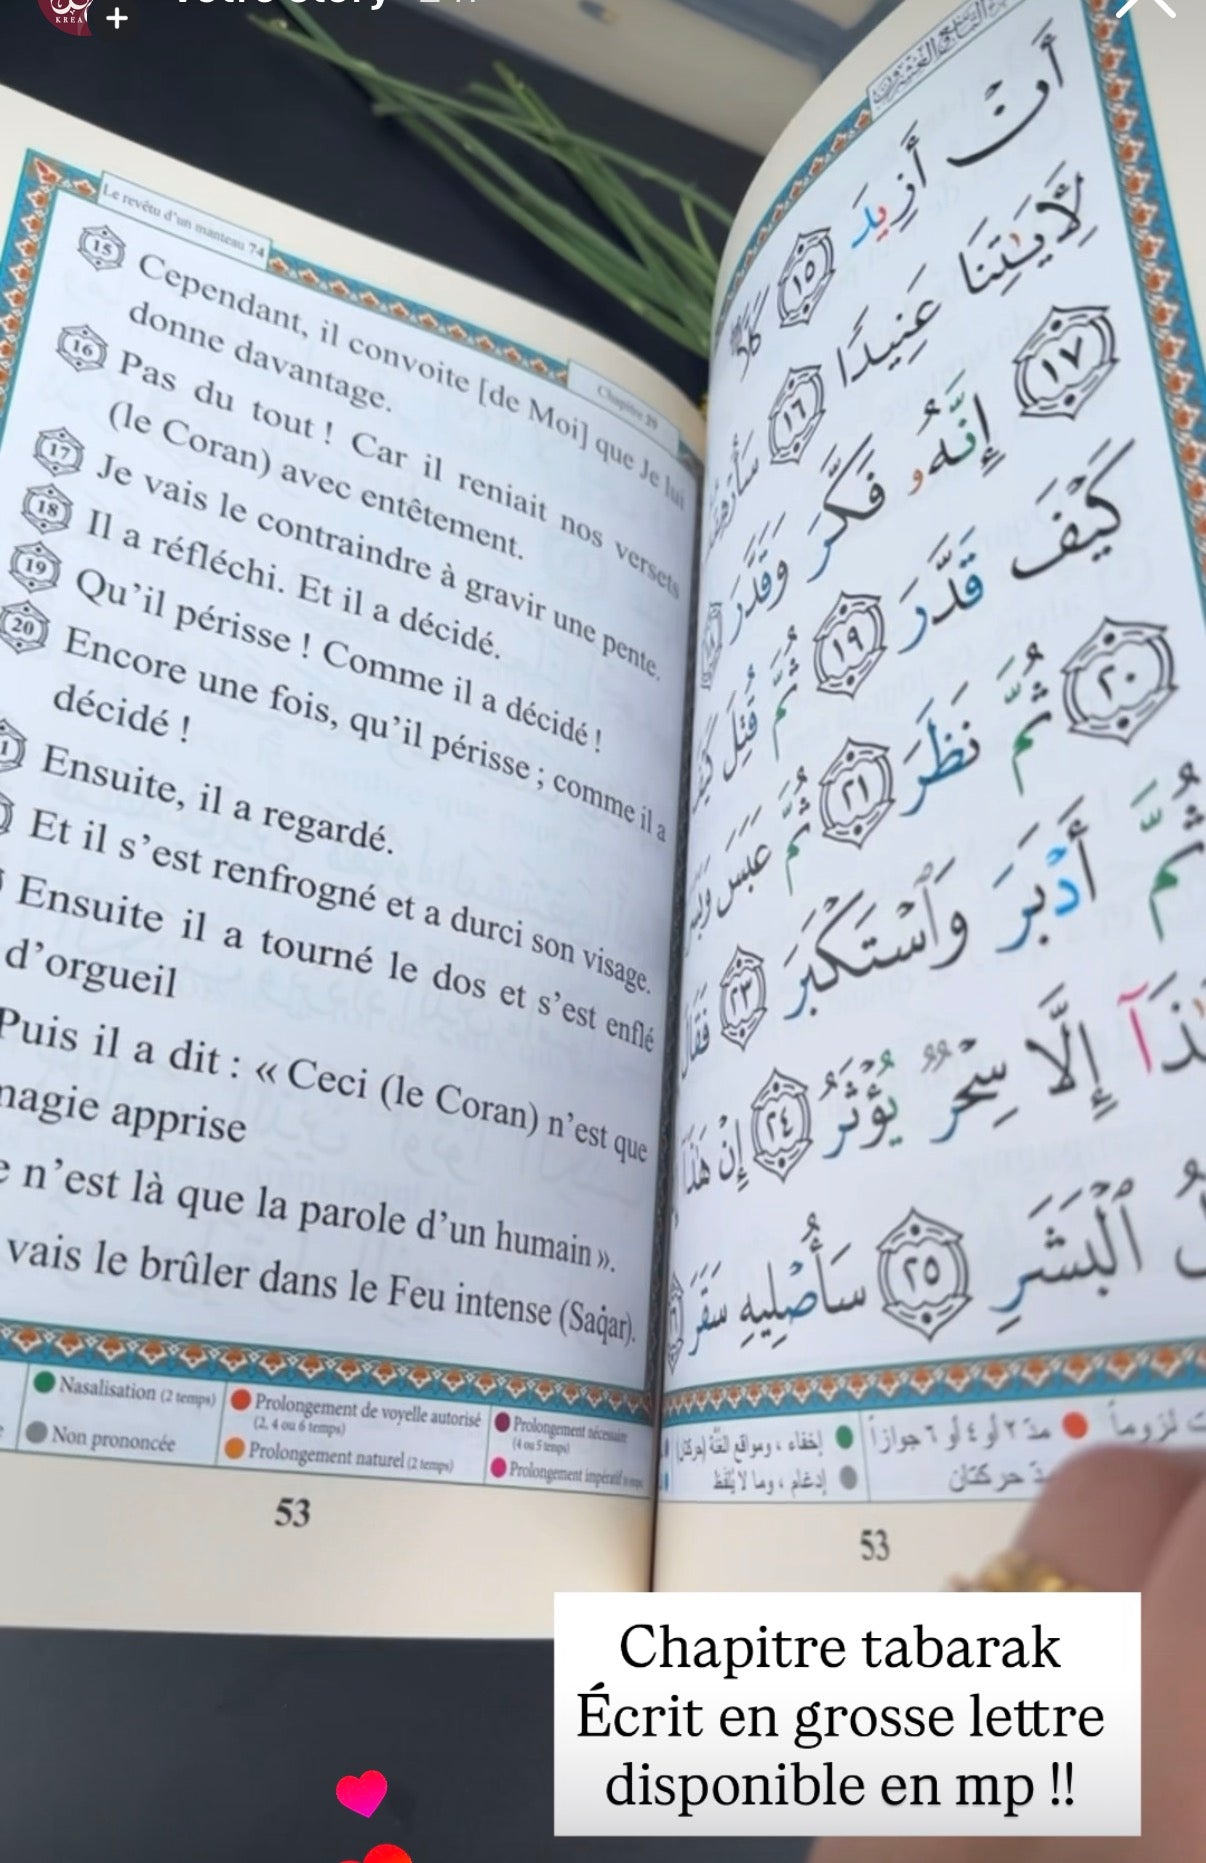 KREA
Le revêtu d'un manteau 74
Chapitre 29
15 Cependant, il convoite [de Moi] que Je lui
donne davantage.
16 Pas du tout ! Car il reniait nos versets
(le Coran) avec entêtement.
17 Je vais le contraindre à gravir une pente.
18 Il a réfléchi. Et il a décidé.
19 Qu'il périsse ! Comme il a décidé !
20 Encore une fois, qu'il périsse ; comme il a
décidé !
Ensuite, il a regardé.
Et il s'est renfrogné et a durci son visage.
Ensuite il a tourné le dos et s'est enflé
d'orgueil
Puis il a dit : « Ceci (le Coran) n'est que
magie apprise
n'est là que la parole d'un humain ».
vais le brûler dans le Feu intense (Saqar).
Nasalisation (2 temps)
Non prononcée
Prolongement de voyelle autorisé
(2, 4 ou 6 temps)
Prolongement naturel (2 temps)
Prolongement nécessaire
(4 ou 5 temps)
Prolongement impératif
53
أَنْ أَزِيدَ ١٥
لِأَيَٰتِنَا عَنِيدًا ١٦
١٧ إِنَّهُۥ فَكَّرَ وَقَدَّرَ
كَيْفَ قَدَّرَ ١٩ ثُمَّ قُتِلَ
٢٠ ثُمَّ نَظَرَ ٢١ ثُمَّ عَبَسَ
ثُمَّ أَدْبَرَ وَٱسْتَكْبَرَ ٢٣ فَقَالَ
إِلَّا سِحْرٌ يُؤْثَرُ ٢٤ إِنْ هَٰذَا
ٱلْبَشَرِ ٢٥ سَأُصْلِيهِ سَقَرَ
مدّ ٢ أو ٤ أو ٦ جوازاً
إخفاء ، ومواقع الغُنَّة (حركتان)
حركتان
إدغام ، وما لا يُلفَظ
53
Chapitre tabarak
Écrit en grosse lettre
disponible en mp !!